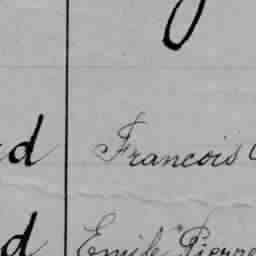 d Francois
d Emile Pierre